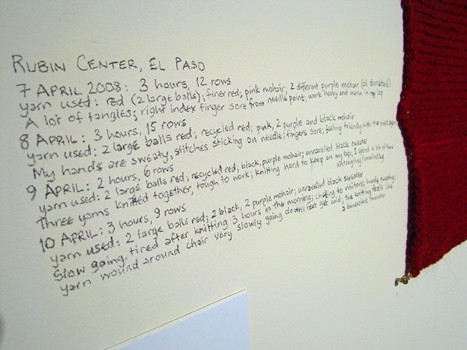 RUBIN CENTER, EL PASO
7 APRIL 2008: 3 hours, 12 rows
yarn used: red (2 large balls); fine red; pink mohair; 2 different purple mohair (all donated)
A lot of tangles; right index finger sore from needle point; work heavy and warm in my lap
8 APRIL: 3 hours, 15 rows
yarn used: 2 large balls red, recycled red, pink, 2 purple and black mohair
My hands are sweaty, stitches sticking on needle; fingers sore; feeling friendly with the
9 APRIL: 2 hours, 6 rows
yarn used: 2 large balls red; recycled red; black, purple mohair; unravelled black sweater
Three yarns knitted together, tough to work; knitting hard to keep on my lap; I spend a lot of time
untangling/unwinding
10 APRIL: 3 hours, 9 rows
yarn used: 2 large balls red; 2 black, 2 purple mohair; unravelled black sweater
Slow going, tired after knitting 3 hours in the morning; chatting to visitors; hands sweaty;
yarn wound around chair very slowly going down; feet get cold; the knitting feels like
a